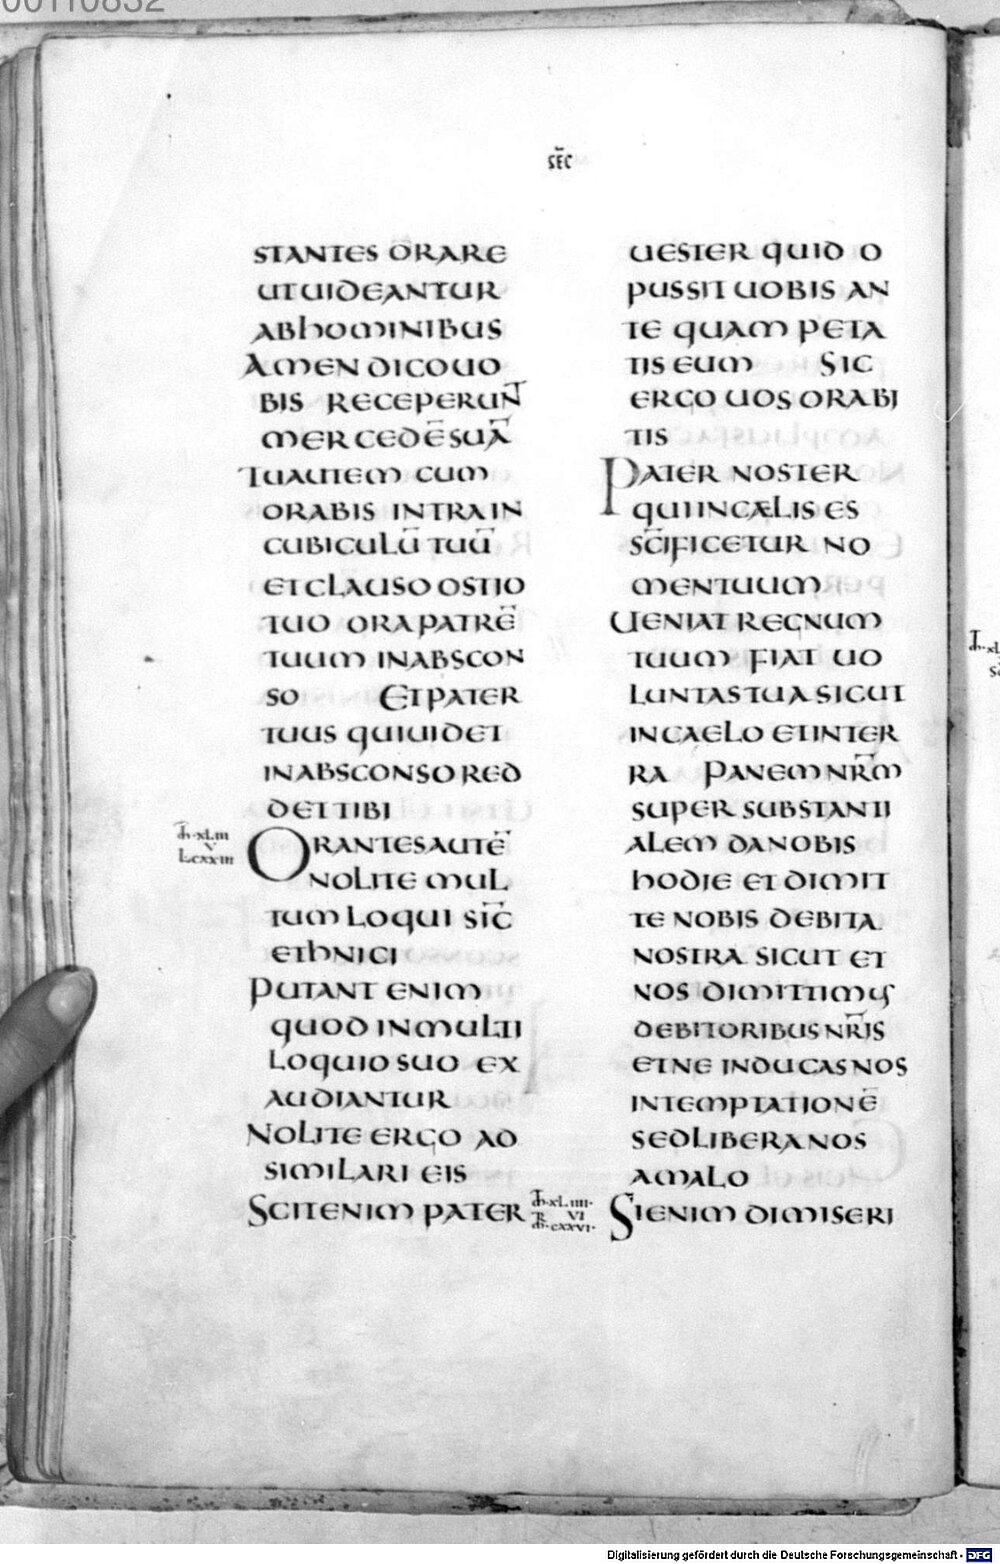 00110832
SEC̄
STANTES ORARE
UTUIDEANTUR
ABhOMINIBUS
AMEN DICOUO
BIS RECEPERUNT̄
MERCEDĒSUĀ
TUAUTEM CUM
ORABIS INTRAIN
CUBICULŪ TUŪ
ETCLAUSO OSTIO
TUO ORAPATRĒ
TUUM INABSCON
SO ETPATER
TUUS QUIUIDET
INABSCONSORED
DETTIBI
Th·XLIII
V
LCXXIII
ORANTESAUTĒ
NOLITE MUL
TUM LOQUI SIC̄
EThNICI
PUTANT ENIM
QUOD INMULTI
LOQUIO SUO EX
AUDIANTUR
NOLITE ERGO AD
SIMILARI EIS
SCITENIM PATER
UESTER QUID O
PUSSIT UOBIS AN
TE QUAM PETA
TIS EUM SIC
ERGO UOS ORABI
TIS
PATER NOSTER
QUIINCÆLIS ES
SC̄IFICETUR NO
MENTUUM
UENIAT REGNUM
TUUM FIAT UO
LUNTASTUA SICUT
INCAELO ETINTER
RA PANEMNR̄M
SUPER SUBSTANTI
ALEM DANOBIS
hODIE ET DIMIT
TE NOBIS DEBITA
NOSTRA SICUT ET
NOS DIMITTIMUS
DEBITORIBUSNR̄IS
ETNE INDUCASNOS
INTEMPTATIONĒ
SEDLIBERANOS
AMALO
XLIIII·
VI
CXXVI·
SIENIM DIMISERI
Digitalisierung gefördert durch die Deutsche Forschungsgemeinschaft - DFG